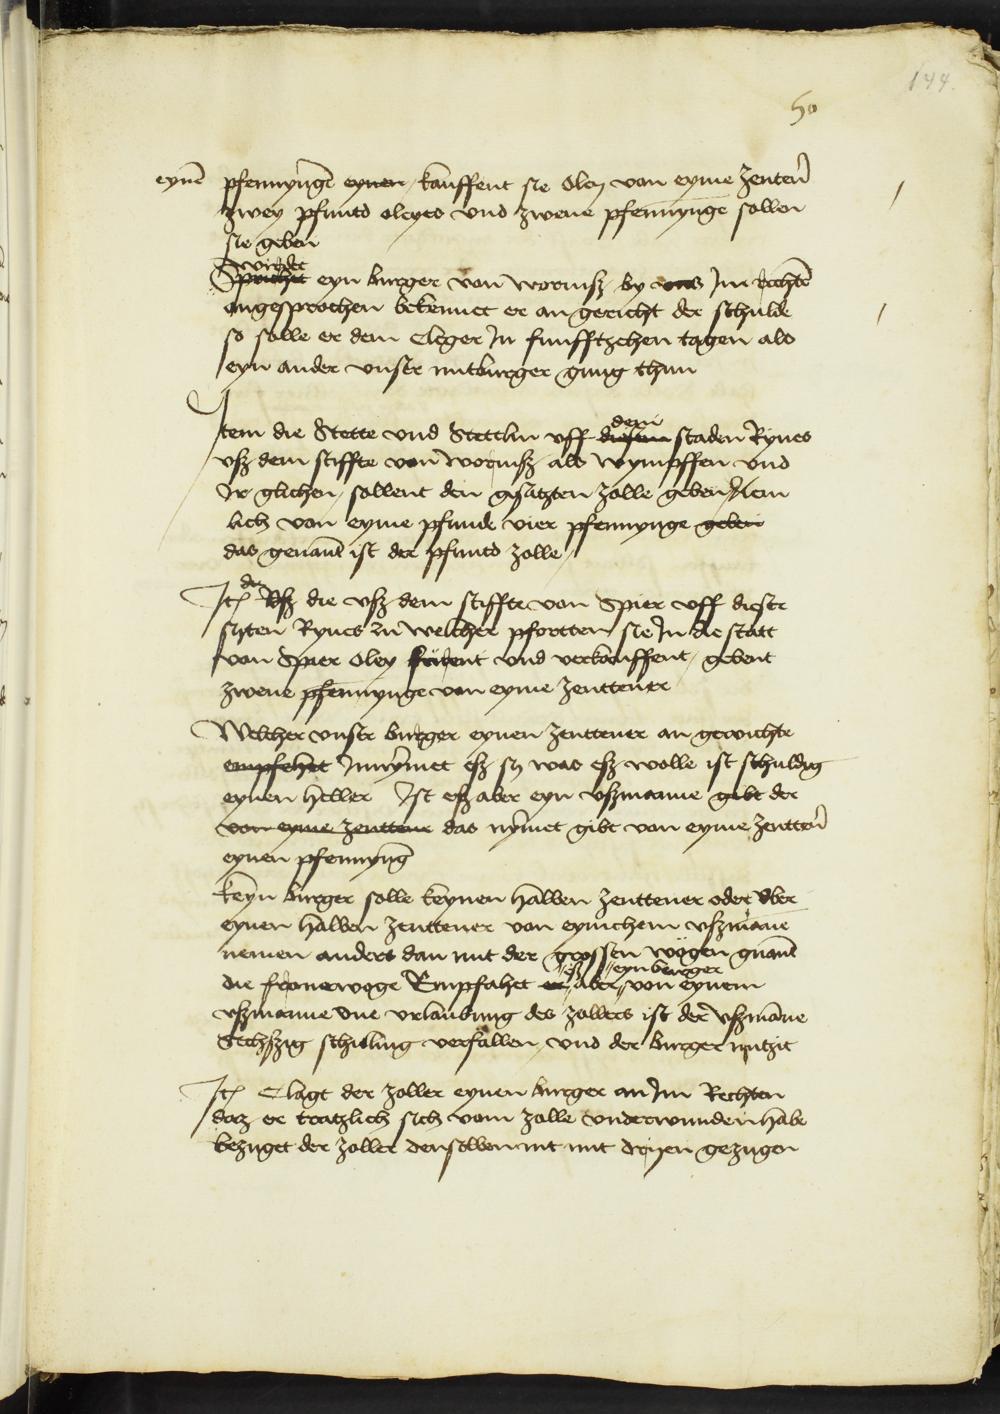 144.
50
eynẽ pfennyngẽ eynen / kauffent sie Oley von eyme zentenͬ
zwey pfuntd oleyes vnd zwene pfennynge sollen
sie geben
wirdet
Sprichet eyn burger von wormsz / by vns Im rechtẽ
angesprochen bekennet er an gericht der schulde
so solle er dem Cleger In funfftzehen tagen als
eyn ander vnser mitburger gnug thun
dem
Item die Stette vnd Stettlin vff diesem staden Rynes
vsz dem stiffte von wormsz als wympffen vnd
Ir glichen / sollent den gesatzten zolle geben / Nem
lich von eyme pfunde vier pfennynge geben
das genant ist der pfunts zolle /
die
Itẽ Vsz die vsz dem stiffte von Spier vff dieser
syten Rynes zu welcher pfortten sie In die statt
von Spier Oley furent vnd verkouffent / gebent
zwene pfennynge von eyme zenttener
Welcher vnser burger eynen zenttener an gewichte
empfehet Innymet esz sy was esz wolle ist schuldig
eynen heller Ist esz aber eyn vszmanne gibt der
von eyme zenttener das nymet gibt von eyme zenttenͬ
eynen pfennyng
keyn burger solle keynen halben zenttener oder vber
eynen halben zenttener von eynichem vszmane
nemen anders dan mit der grossen wogen gnant
esz eyn burger
die fronerwoge Empfahet er aber von eynem
vszmanne one vrlaubung des zollers ist der vszmanne
Sechszig schilling verfallen / vnd der burger nutzit
Itẽ Clagt der zoller eynen burger an Im Rechten
daz er tratzlich sich vom zolle vnderwunden habe
bezuget der zoller denselben nit mit dryen gezugen